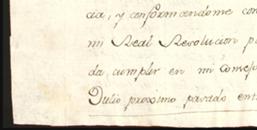 cia, y conformandome con
mi Real Resolucion p
da, cumplir en mi Consejo
Julio proximo pasado ent